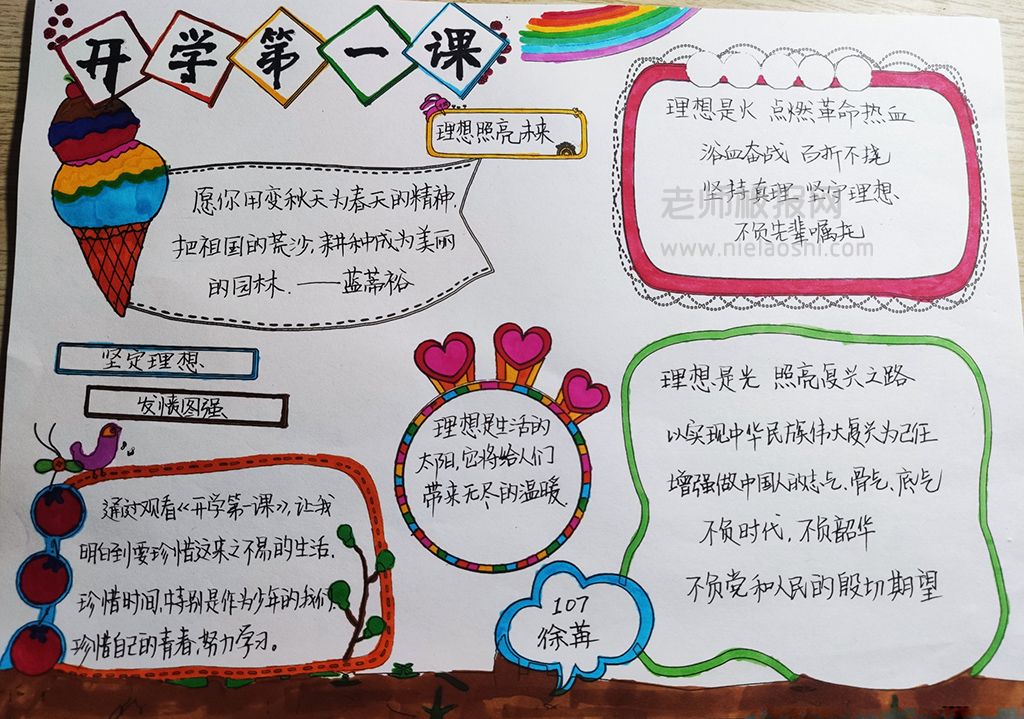 开学第一课
理想照亮未来
愿你用变秋天为春天的精神.
把祖国的荒沙,耕种成为美丽
的园林.——蓝蒂裕
理想是火 点燃革命热血
浴血奋战 百折不挠
坚持真理 坚守理想
不负先辈嘱托
老师板报网
www.nielaoshi.com
坚定理想
发愤图强
理想是生活的
太阳,它将给人们
带来无尽的温暖
理想是光 照亮复兴之路
以实现中华民族伟大复兴为己任
增强做中国人的志气、骨气、底气
不负时代,不负韶华
不负党和人民的殷切期望
通过观看《开学第一课》,让我
明白到要珍惜这来之不易的生活.
珍惜时间,特别是作为少年的我们,
珍惜自己的青春,努力学习。
107
徐苒